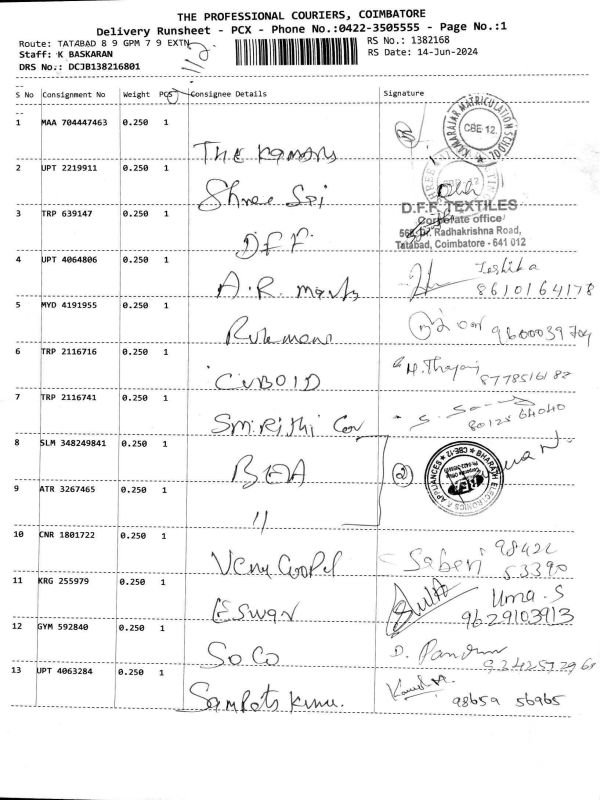 THE PROFESSIONAL COURIERS, COIMBATORE
Delivery Runsheet - PCX - Phone No.:0422-3505555 - Page No.:1
Route: TATABAD 8 9 GPM 7 9 EXTN
RS No.: 1382168
Staff: K BASKARAN
RS Date: 14-Jun-2024
DRS No.: DCJB138216801
S No Consignment No Weight PCS Consignee Details Signature
1 MAA 704447463 0.250 1 THE
KAMARAJAR MATRICULATION SCHOOL CBE 12.
2 UPT 2219911 0.250 1 Shree Sai
3 TRP 639147 0.250 1 D.F.F
D.F.F. TEXTILES
Corporate office
Radhakrishna Road,
Tatabad, Coimbatore - 641 012
4 UPT 4064806 0.250 1 A.R.
8610164178
5 MYD 4191955 0.250 1
9600039704
6 TRP 2116716 0.250 1 CUBOID
8778516182
7 TRP 2116741 0.250 1 Smrithi
80125 64040
8 SLM 348249841 0.250 1
BHARATH ELECTRONICS & APPLIANCES CBE-12
9 ATR 3267465 0.250 1 "
10 CNR 1801722 0.250 1 Venu Gopal
98422
53390
11 KRG 255979 0.250 1 Eswar
Uma.S
9629103913
12 GYM 592840 0.250 1 SoCo
D.
13 UPT 4063284 0.250 1
98659 56965